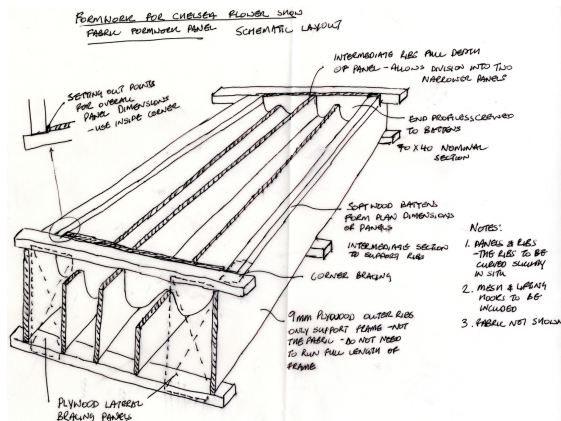 FORMWORK FOR CHELSEA FLOWER SHOW
FABRIC FORMWORK PANEL SCHEMATIC LAYOUT
SETTING OUT POINTS
FOR OVERALL
PANEL DIMENSIONS
- USE INSIDE CORNER
INTERMEDIATE RIBS FULL DEPTH
OF PANEL - ALLOWS DIVISION INTO TWO
NARROWER PANELS
END PROFILES SCREWED
TO BATTENS
70 X 40 NOMINAL
SECTION
SOFTWOOD BATTENS
FORM PLAN DIMENSIONS
OF PANELS
INTERMEDIATE SECTION
TO SUPPORT RIBS
CORNER BRACING
9MM PLYWOOD OUTER RIBS
ONLY SUPPORT FRAME - NOT
THE FABRIC - DO NOT NEED
TO RUN FULL LENGTH OF
FRAME
PLYWOOD LATERAL
BRACING PANELS
NOTES:
1. PANELS & RIBS
- THE RIBS TO BE
CURVED SLIGHTLY
IN SITU
2. MESH & LIFTING
HOOKS TO BE
INCLUDED
3. FABRIC NOT SHOWN